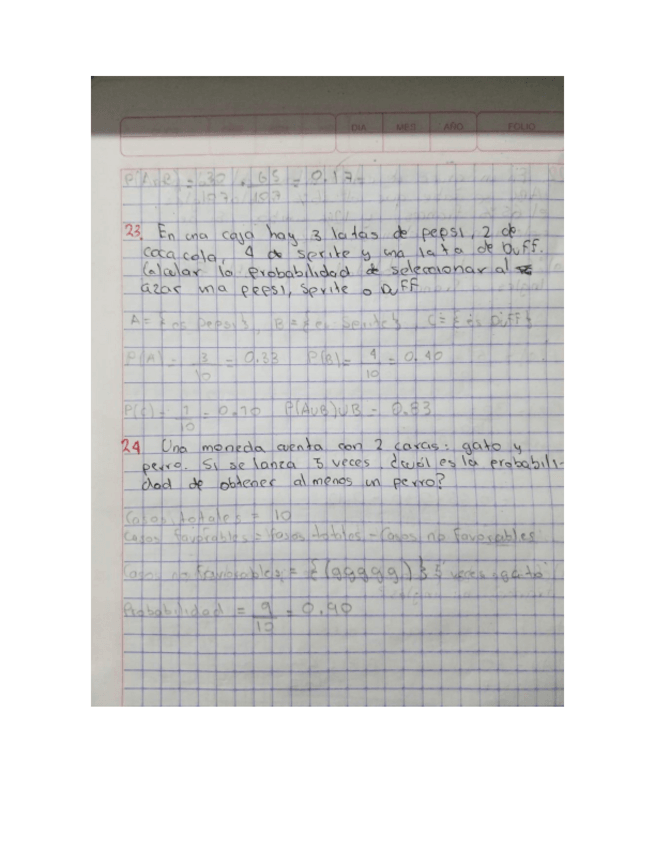 DIA MES AÑO FOLIO
P(A∩B) = 30/107 · 65/107 = 0.17
23 En una caja hay 3 latas de pepsi, 2 de
coca cola, 4 de sprite y una lata de Duff.
Calcular la probabilidad de seleccionar al
azar una pepsi, sprite o Duff
A = {es pepsi}, B = {es sprite}, C = {es Duff}
P(A) = 3/10 = 0.33 P(B) = 4/10 = 0.40
P(C) = 1/10 = 0.10 P(A∪B)∪B = 0.83
24 Una moneda cuenta con 2 caras: gato y
perro. Si se lanza 5 veces ¿cuál es la probabili-
dad de obtener al menos un perro?
Casos totales = 10
Casos favorables = Casos totales - Casos no favorables
Casos no favorables = {(ggggg)} 5 veces gato
Probabilidad = 9/10 = 0.90